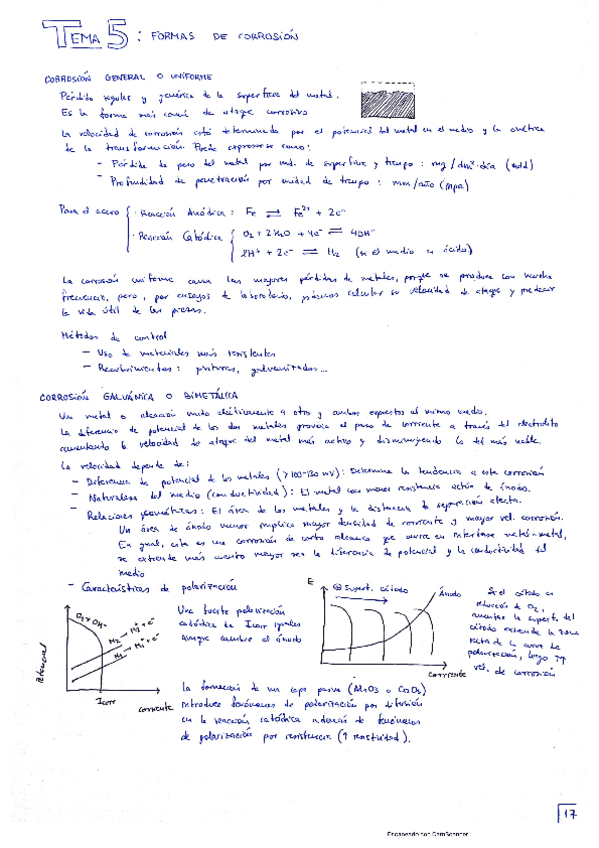 TEMA 5: FORMAS DE CORROSIÓN
CORROSIÓN GENERAL O UNIFORME
Pérdida regular y genérica de la superficie del metal.
Es la forma más común de ataque corrosivo
La velocidad de corrosión está determinada por el potencial del metal en el medio y la cinética
de la transformación. Puede expresarse como:
- Pérdida de peso del metal por und. de superficie y tiempo: mg/dm²·día (mdd)
- Profundidad de penetración por unidad de tiempo: mm/año (mpa)
Para el acero
· Reacción Anódica: Fe ⇌ Fe²⁺ + 2e⁻
· Reacción Catódica
O₂ + 2H₂O + 4e⁻ ⇌ 4OH⁻
2H⁺ + 2e⁻ ⇌ H₂ (si el medio es ácido)
La corrosión uniforme causa las mayores pérdidas de metales, porque se produce con mucha
frecuencia, pero, por ensayos de laboratorio, podemos calcular su velocidad de ataque y predecir
la vida útil de las piezas.
Métodos de control
- Uso de materiales más resistentes
- Recubrimientos: pinturas, galvanizados...
CORROSIÓN GALVÁNICA O BIMETÁLICA
Un metal o aleación unido eléctricamente a otro y ambos expuestos al mismo medio.
La diferencia de potencial de los dos metales provoca el paso de corriente a través del electrolito
aumentando la velocidad de ataque del metal más activo y disminuyendo la del más noble.
La velocidad depende de:
- Diferencia de potencial de los metales (>100-130 mV): Determina la tendencia a esta corrosión
- Naturaleza del medio (conductividad): El metal con menor resistencia actúa de ánodo.
- Relaciones geométricas: El área de los metales y la distancia de separación afecta.
Un área de ánodo menor implica mayor densidad de corriente y mayor vel. corrosión.
En gral, esta es una corrosión de corto alcance que ocurre en interfase metal-metal,
se extiende más cuanto mayor sea la diferencia de potencial y la conductividad del
medio
- Características de polarización
Potencial
O₂ → OH⁻
M₂ → M₂⁺ + e⁻
M₁ → M₁⁺ + e⁻
Icorr
corriente
Una fuerte polarización
catódica da Icorr iguales
aunque cambie el ánodo
E
⊕ Superf. cátodo
Ánodo
Corriente
Si el cátodo es
reducción de O₂,
aumentar la superf. del
cátodo extiende la zona
recta de la curva de
polarización, luego ↑↑
vel. de corrosión
La formación de una capa pasiva (Al₂O₃ o Cr₂O₃)
introduce fenómenos de polarización por difusión
en la reacción catódica además de fenómenos
de polarización por resistencia (↑ resistividad).
17
Escaneado con CamScanner